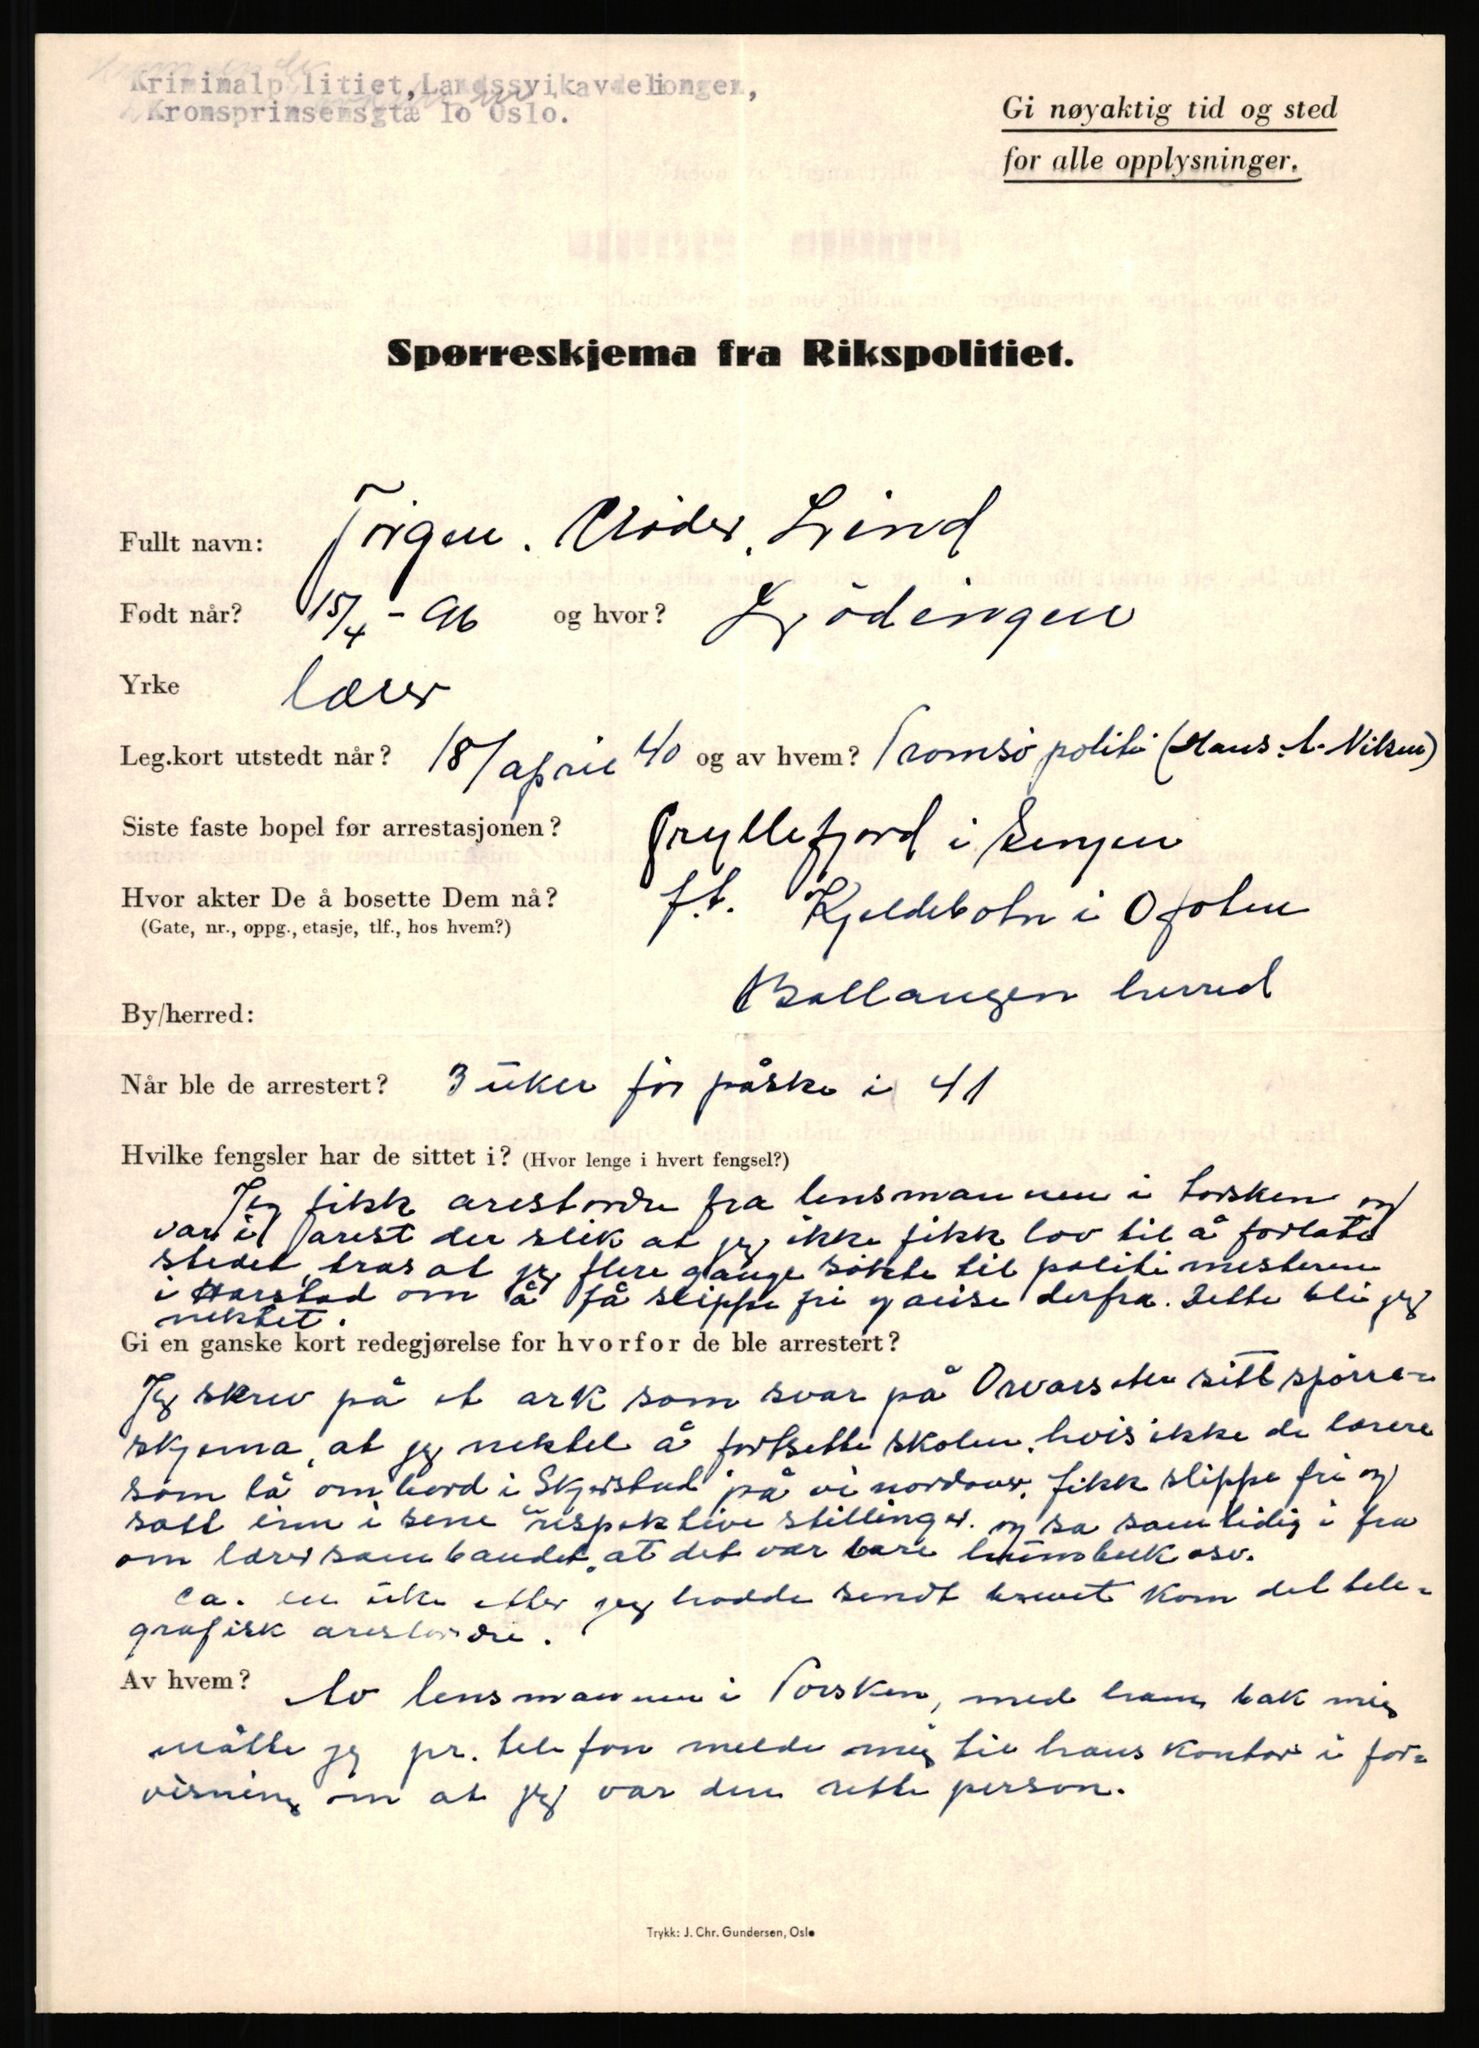 Kriminalp litiet, Landssvikavdelingen,
Kronsprinsensgta 10 Oslo.
Gi nøyaktig tid og sted
for alle opplysninger.
Spørreskjema fra Rikspolitiet.
Fullt navn: Jörgen. Röder. Lind
Født når? 15/4 - 96 og hvor? Lödingen
Yrke lærer
Leg.kort utstedt når? 18/april 40 og av hvem? Tromsö politi (Hans A. Nilsen)
Siste faste bopel før arrestasjonen? Gryllefjord i Senjen
Hvor akter De å bosette Dem nå? f.t. Kjeldebotn i Ofoten
(Gate, nr., oppg., etasje, tlf., hos hvem?)
Ballangen herred
By/herred:
Når ble de arrestert? 3 uker för påske i 41
Hvilke fengsler har de sittet i? (Hvor lenge i hvert fengsel?)
Jeg fikk arestordre fra lensmannen i Torsken og
var i arest der slik at jeg ikke fikk lov til å forlate
stedet, tras at jeg flere gange sökte til politimesteren
i Harstad om å få slippe fri og reise derfra. Dette ble jeg
nektet.
Gi en ganske kort redegjørelse for hvorfor de ble arrestert?
Jeg skrev på et ark som svar på Orvar sitt spörre-
skjema, at jeg nektet å fortsette skolen, hvis ikke de lærere
som lå ombord i Skjerstad på vei nordover, fikk slippe fri og
satt inn i sine respektive stillinger. og sa samtidig i fra
om lærersambandet, at det var bare humbukk osv.
ca. en uke etter jeg hadde sendt brevet kom det tele-
grafisk arestordre.
Av hvem? Av lensmannen i Torsken, med ham bak mig
måtte jeg pr. telefon melde mig til hans kontor i for-
visning om at jeg var den rette person.
Trykk: J. Chr. Gundersen, Oslo